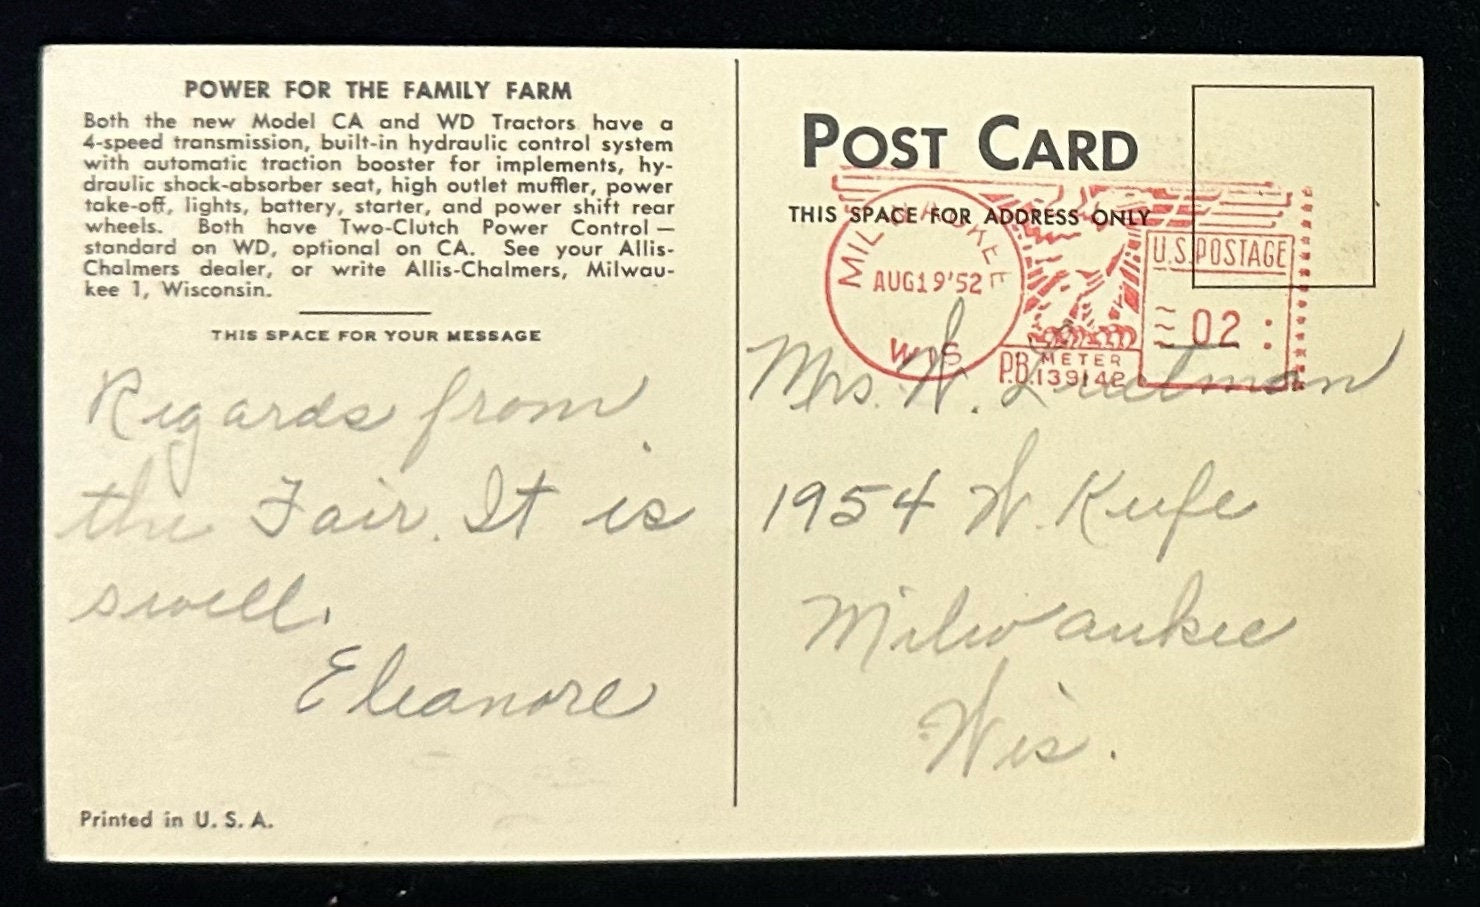 POWER FOR THE FAMILY FARM
Both the new Model CA and WD Tractors have a
4-speed transmission, built-in hydraulic control system
with automatic traction booster for implements, hy-
draulic shock-absorber seat, high outlet muffler, power
take-off, lights, battery, starter, and power shift rear
wheels. Both have Two-Clutch Power Control —
standard on WD, optional on CA. See your Allis-
Chalmers dealer, or write Allis-Chalmers, Milwau-
kee 1, Wisconsin.
THIS SPACE FOR YOUR MESSAGE
Regards from
the Fair. It is
swell.
Eleanore
Printed in U. S. A.
POST CARD
THIS SPACE FOR ADDRESS ONLY
MILWAUKEE
AUG19'52
WIS
U.S.POSTAGE
02
P.B. METER
139142
Mrs. W.
1954 W. Keefe
Milwaukee
Wis.